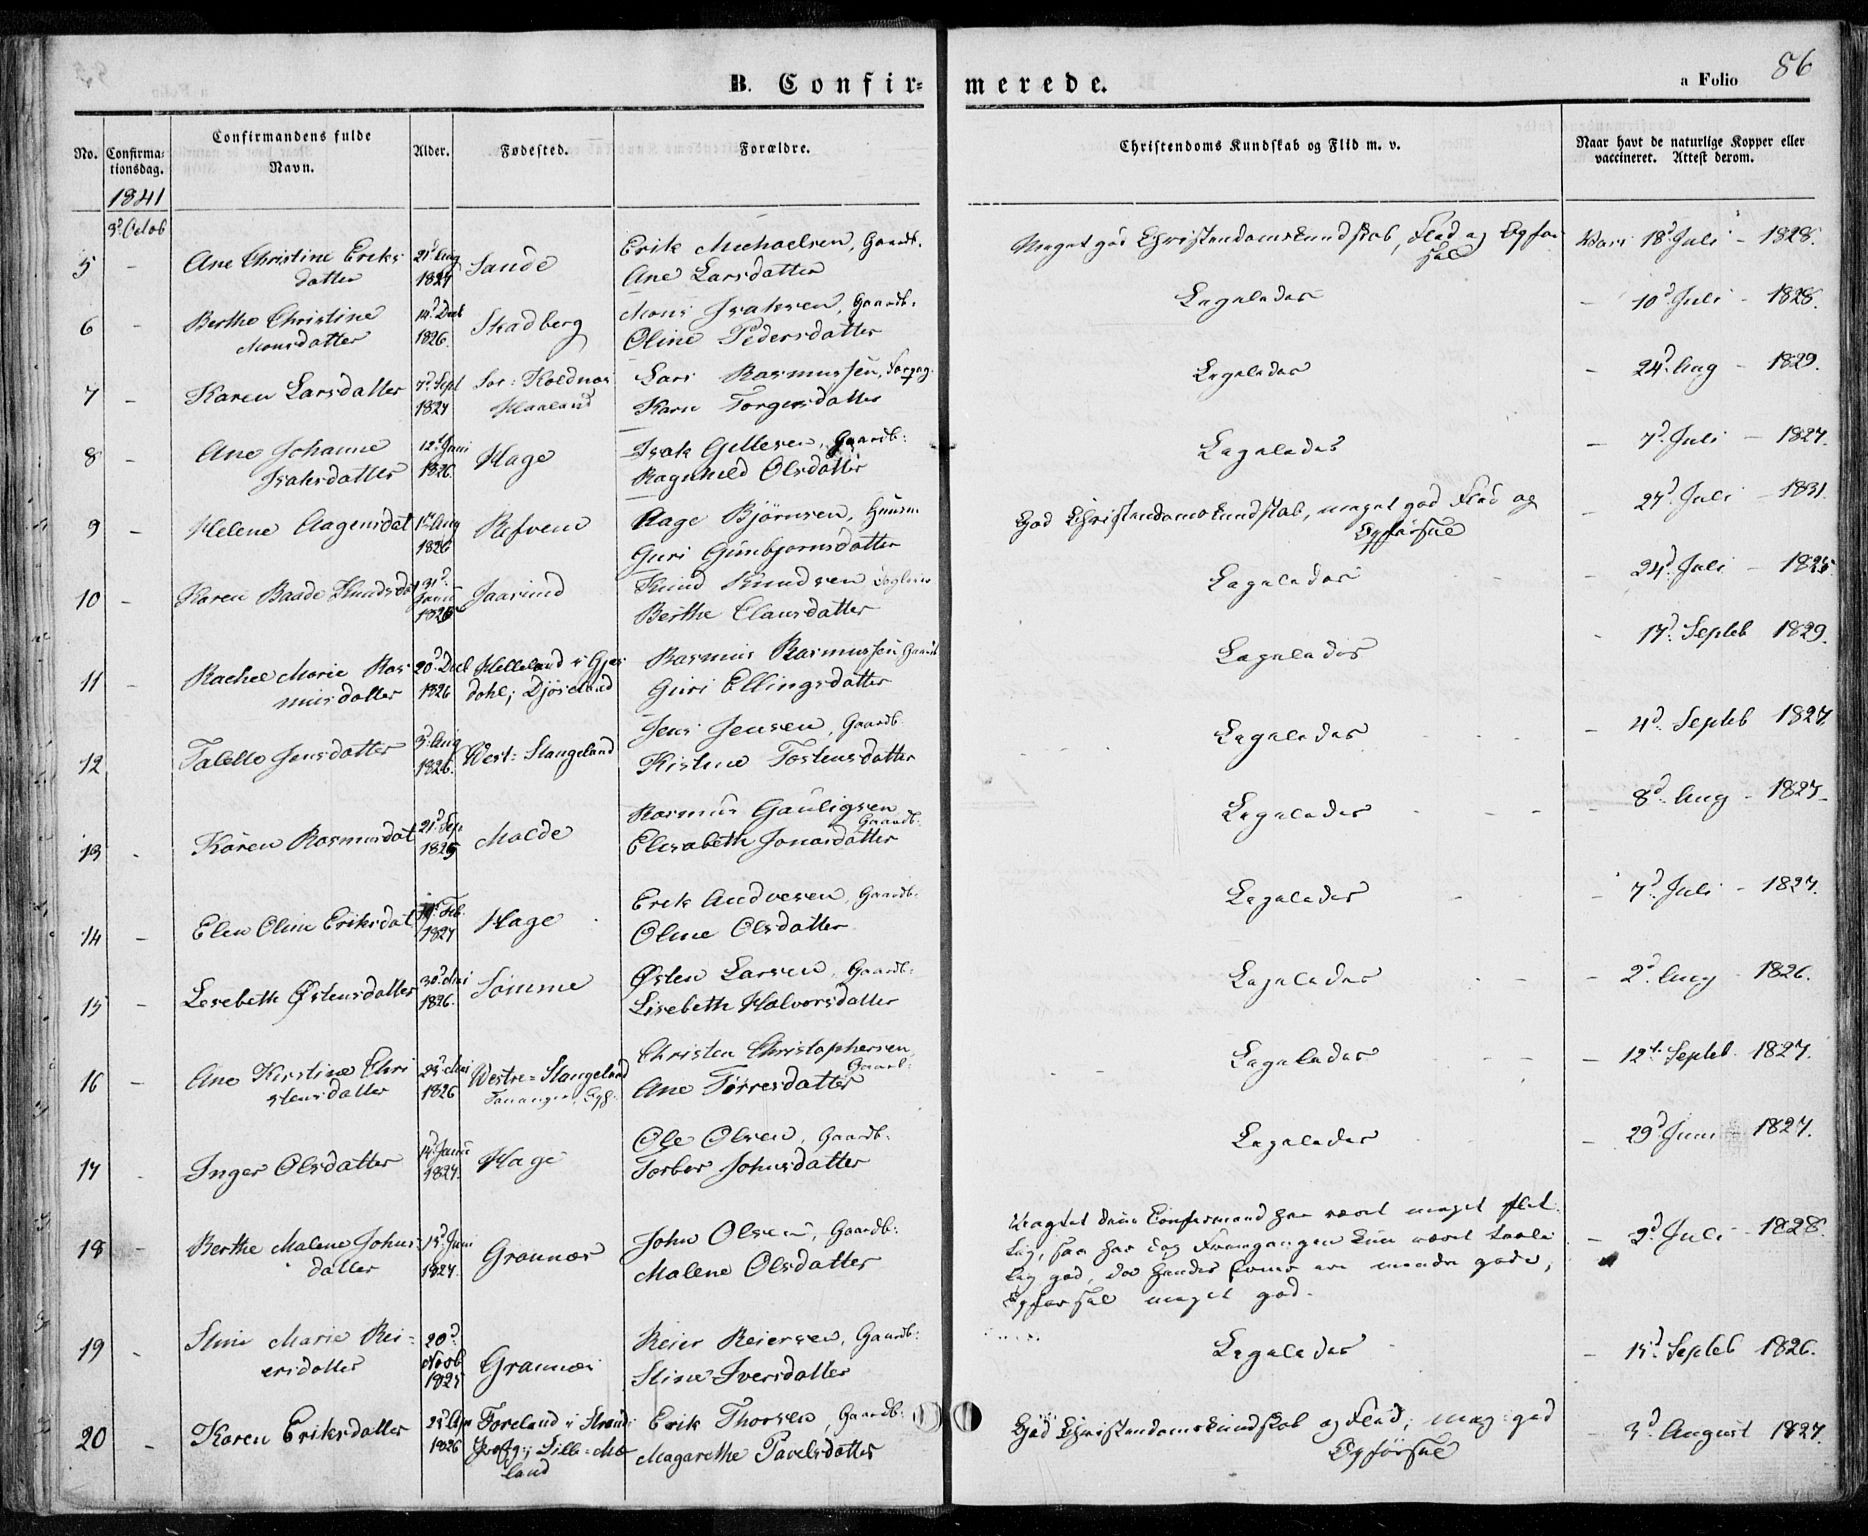 B. Confir=
merede.
a Folio 86
No.
Confirma=
tionsdag.
Confirmandens fulde
Navn.
Alder.
Fødested.
Forældre.
Christendoms Kundskab og Flid m. v.
Naar havt de naturlige Kopper eller
vaccineret. Attest derom.
1841
3d Octob
5 - Ane Christine Eriks
datter
21d Aug
1827
Sande
Erik Michaelsen, Gaardb.
Ane Larsdatter
Meget god Christendomskundskab, Flid og Opfør
sel
Vacc: 18d Juli - 1828.
6 - Berthe Christine
Monsdatter
14d Decb
1826.
Skadberg
Mons Isaksen, Gaardb.
Oline Pedersdatter
Ligeledes
- 10d Juli - 1828.
7 - Karen Larsdatter
7d Sept
1827
Haaland
Lars Rasmussen,
Karen Torgersdatter
Ligeledes
- 24d Aug - 1829.
8 - Ane Johanne
Isaksdatter
12d Juni
1826.
Hage
Isak Gittlesen, Gaardb:
Ragnhild Olsdatter
Ligeledes
- 7d Juli - 1827.
9 - Helene Aagesdat
1d Aug
1826
Refvem
Aage Bjørnsen, Huusm
Guri Gunbjørnsdatter
God Christendomskundskab, meget god Flid og
Opførsel
- 27d Juli - 1831.
10 - Karen Baade Knudsdat
31d
Janu
1826
Jaasund
Knud Knudsen
Berthe Clausdatter
Ligeledes
- 24d Juli - 1828
11 - Rachel Marie Ras
musdatter
20d Decb
1826
Helleland i Gjes
dahl; Djøseland
Rasmus Rasmussen Gaardb
Guri Ellingsdatter
Ligeledes
- 17d Septeb 1829.
12 Talette Jensdatter
3d Aug
1826.
West: Stangeland
Jens Jensen, Gaardb
Kistine Tostensdatter
Ligeledes
- 4d Septeb 1827.
13 - Karen Rasmusdat
21d Sep
1825
Molde
Rasmus Gauligsen
Gaardb.
Elisabeth Jonasdatter
Ligeledes
- 8d Aug - 1827.
14 - Elen Oline Eriksdat
Feb.
1827
Hage
Erik Andresen, Gaardb.
Oline Olsdatter
Ligeledes
- 7d Juli - 1827.
15 - Lisebeth Østensdatter
30d Mai
1826.
Sømme
Østen Larsen, Gaardb.
Lisebeth Halvorsdatter
Ligeledes
- 2d Aug - 1826.
16 - Ane Kirstine Chri
stensdatter
25d Mai
1826
Westre=Stangeland
Christen Christophersen,
Gaardb:
Ane Tørresdatter
Ligeledes
- 12t Septeb. 1827.
17 - Inger Olsdatter
14d Janu
1827.
Hage
Ole Olsen, Gaardb:
Torber Johnsdatter
Ligeledes
- 29d Juni - 1827.
18 - Berthe Malene Johns
datter
15d Juni
1827.
Grannæs
John Olsen, Gaardb:
Malene Olsdatter
Uagtet denne Confirmand har været meget flit
tig, saa har dog Fremgangen kun været taale
lig god, da hendes Evner ere mindre gode,
Opførsel meget god.
- 2d Juli - 1828.
19 - Stine Marie Rei=
ersdatter
20d
Novb
1825
Grannæs
Reier Reiersen, Gaardb:
Stine Iversdatter
Ligeledes
- 15d Septeb 1826.
20 - Karen Eriksdatter
25d Apr
1826
Foreland i Strands
Præstg:; Lille=Mæ
land
Erik Thorsen, Gaardb:
Magarethe Pavelsdatter
God Christendomskundskab og Flid; meg: god
Opførsel
- 3d August 1827.